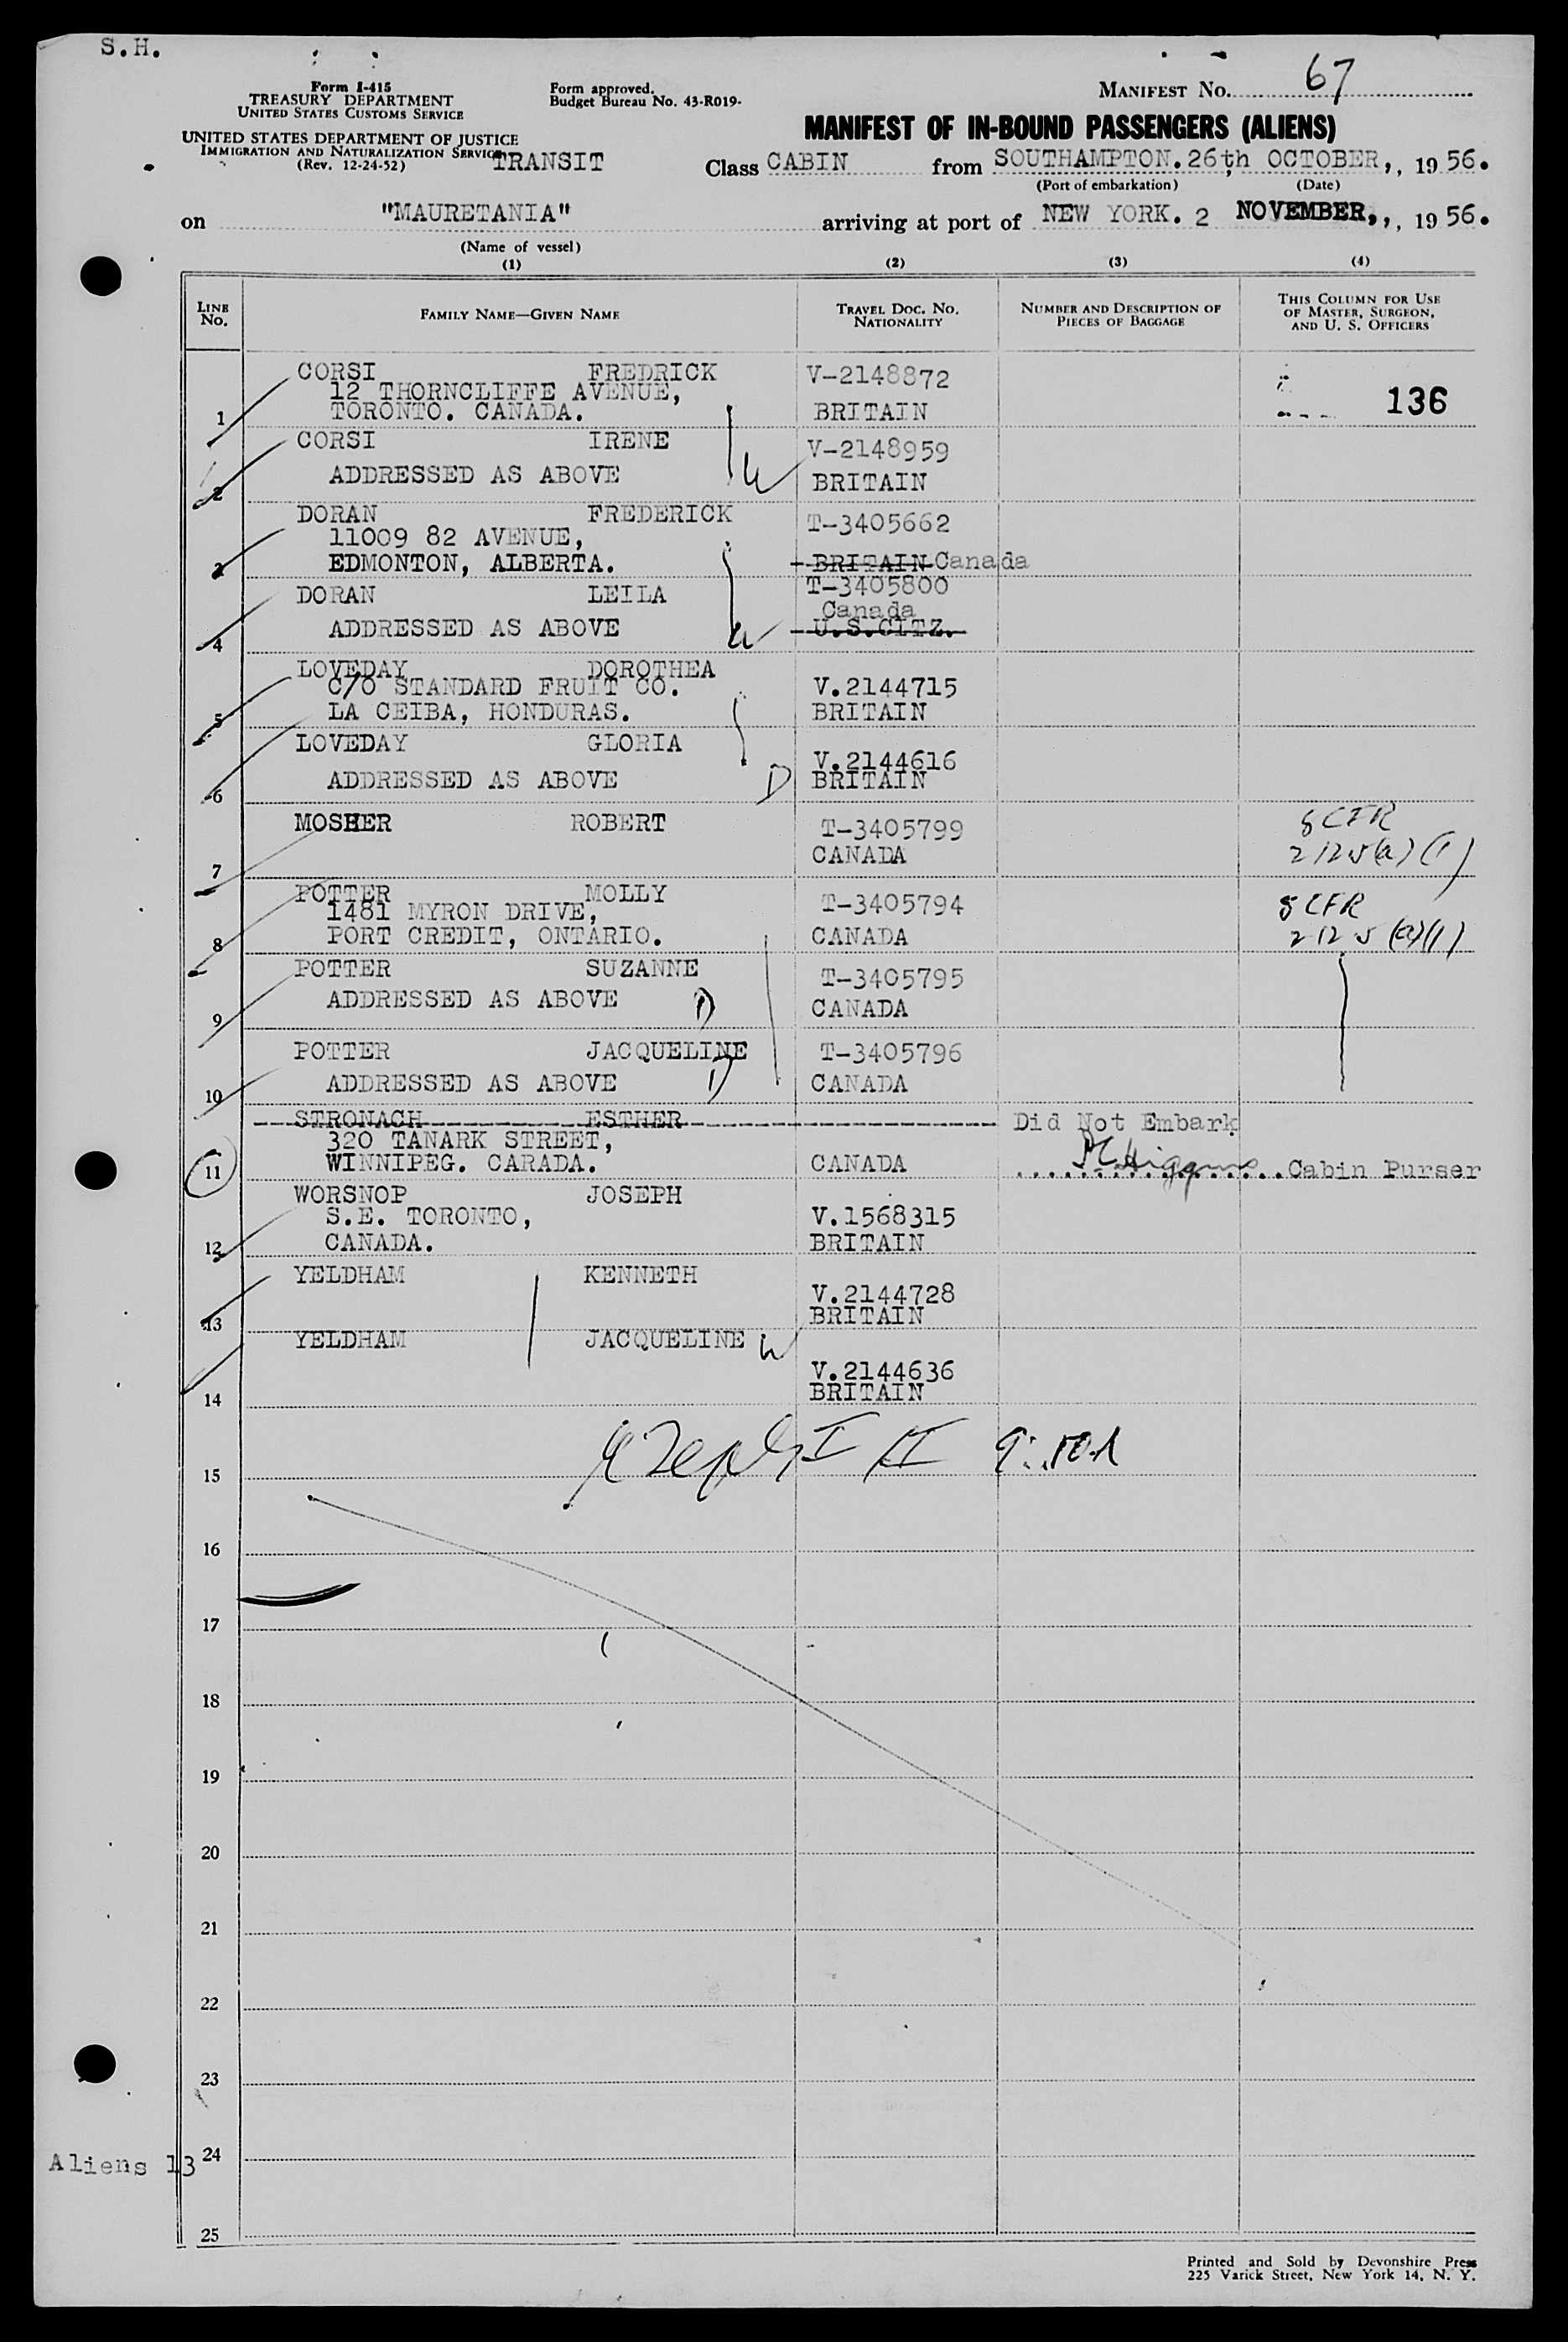 S.H.
Form I-415
TREASURY DEPARTMENT
UNITED STATES CUSTOMS SERVICE
UNITED STATES DEPARTMENT OF JUSTICE
IMMIGRATION AND NATURALIZATION SERVICE
(Rev. 12-24-52)
TRANSIT
Form approved.
Budget Bureau No. 43-R019-
MANIFEST NO. 67
MANIFEST OF IN-BOUND PASSENGERS (ALIENS)
Class CABIN from SOUTHAMPTON. 26th OCTOBER, , 19 56.
(Port of embarkation) (Date)
on "MAURETANIA" arriving at port of NEW YORK. 2 NOVEMBER, , 19 56.
(Name of vessel)
(1) (2) (3) (4)
LINE NO. FAMILY NAME—GIVEN NAME TRAVEL DOC. NO. NATIONALITY NUMBER AND DESCRIPTION OF PIECES OF BAGGAGE THIS COLUMN FOR USE OF MASTER, SURGEON, AND U. S. OFFICERS
CORSI FREDRICK V-2148872
12 THORNCLIFFE AVENUE, 136
1 TORONTO. CANADA. BRITAIN
CORSI IRENE V-2148959
2 ADDRESSED AS ABOVE W BRITAIN
DORAN FREDERICK T-3405662
11009 82 AVENUE,
3 EDMONTON, ALBERTA. BRITAIN Canada
DORAN LEILA T-3405800
Canada
4 ADDRESSED AS ABOVE W U.S.CITZ.
LOVEDAY DOROTHEA
C/O STANDARD FRUIT CO. V.2144715
5 LA CEIBA, HONDURAS. BRITAIN
LOVEDAY GLORIA V.2144616
6 ADDRESSED AS ABOVE D BRITAIN
MOSHER ROBERT T-3405799 8 CFR
7 CANADA 212 5(a) (1)
POTTER MOLLY T-3405794 8 CFR
1481 MYRON DRIVE,
8 PORT CREDIT, ONTARIO. CANADA 212 5 (a)(1)
POTTER SUZANNE T-3405795
9 ADDRESSED AS ABOVE D CANADA
POTTER JACQUELINE T-3405796
10 ADDRESSED AS ABOVE D CANADA
STRONACH ESTHER Did Not Embark
320 TANARK STREET,
11 WINNIPEG. CARADA. CANADA Higgins Cabin Purser
WORSNOP JOSEPH
S.E. TORONTO, V.1568315
12 CANADA. BRITAIN
YELDHAM KENNETH V.2144728
13 BRITAIN
YELDHAM JACQUELINE W V.2144636
14 BRITAIN
15
16
17
18
19
20
21
22
23
24
Aliens 13
25
Printed and Sold by Devonshire Press
225 Varick Street, New York 14, N. Y.